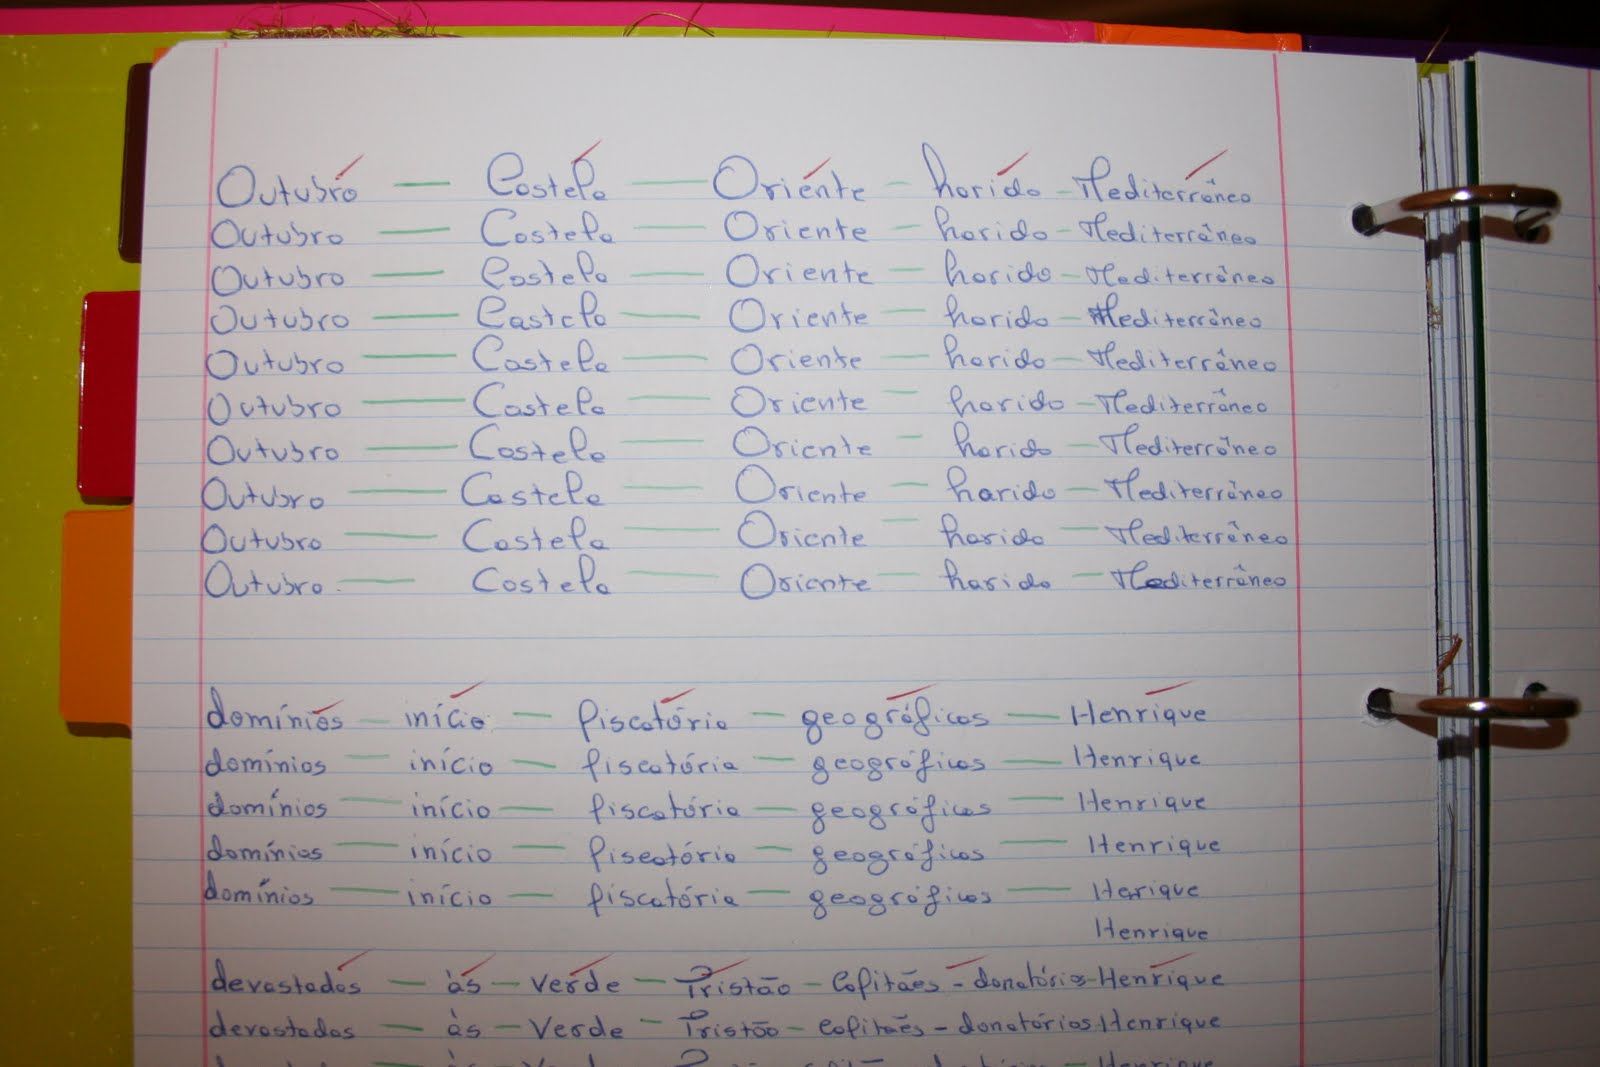 Outubro — Castela — Oriente — havido — Mediterrâneo
Outubro — Castela — Oriente — havido — Mediterrâneo
Outubro — Castela — Oriente — havido — Mediterrâneo
Outubro — Castela — Oriente — havido — Mediterrâneo
Outubro — Castela — Oriente — havido — Mediterrâneo
Outubro — Castela — Oriente — havido — Mediterrâneo
Outubro — Castela — Oriente — havido — Mediterrâneo
Outubro — Castela — Oriente — havido — Mediterrâneo
Outubro — Castela — Oriente — havido — Mediterrâneo
Outubro — Castela — Oriente — havido — Mediterrâneo
domínios — início — piscatória — geográficos — Henrique
domínios — início — piscatória — geográficos — Henrique
domínios — início — piscatória — geográficos — Henrique
domínios — início — piscatória — geográficos — Henrique
domínios — início — piscatória — geográficos — Herique
Henrique
devastados — às — Verde — Tristão — Capitães - donatórios - Henrique
devastados — às — Verde — Tristão — Capitães - donatórios Henrique